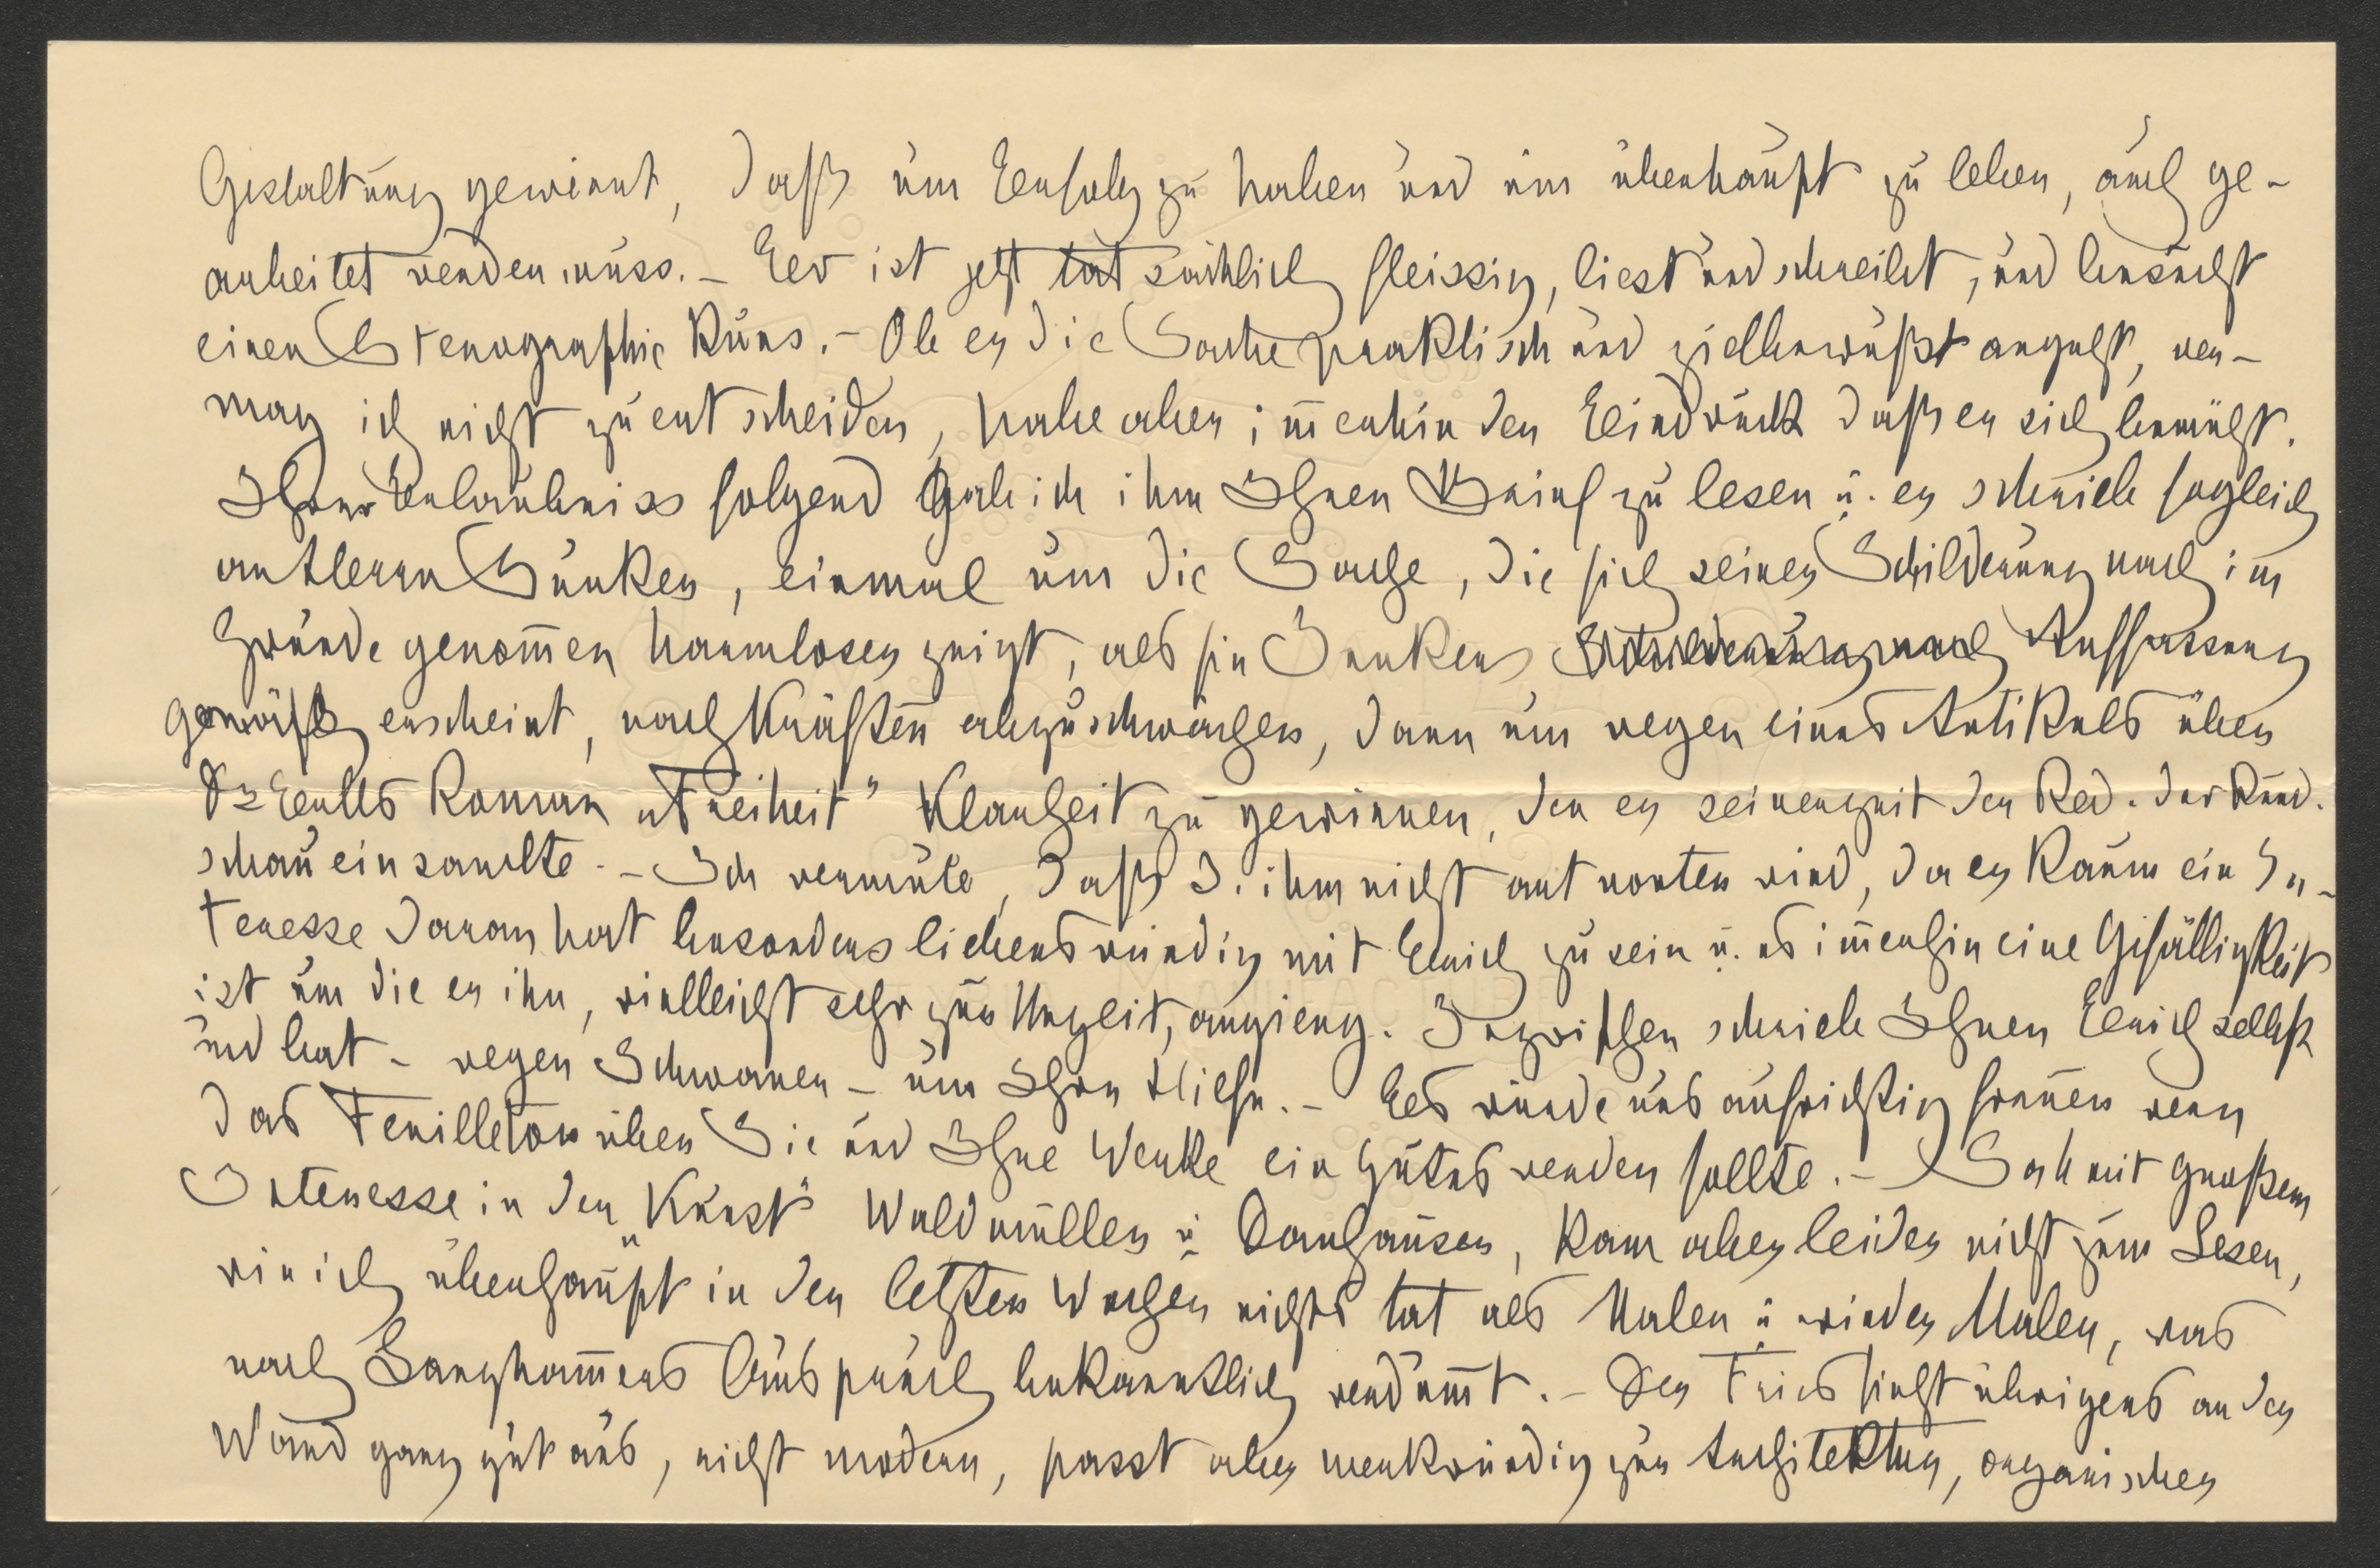 Gestaltung gewinnt, daß um Erfolg zu haben und um überhaupt zu leben, auch ge-
arbeitet werden muss. - Er ist jetzt tatsächlich fleissig, liest und schreibt, und besucht
einen Stenographie Kurs. - Ob er die Sache praktisch und zielbewußt angeht, ver-
mag ich nicht zu entscheiden, habe aber im̅erhin den Eindruck daß er sich bemüht.
Ihrer Erlaubniss folgend gab ich ihm Ihren Brief zu lesen u. er schrieb sogleich
an Herrn Junker, einmal um die Sache, die sich seiner Schilderung nach im
Grunde genom̅en harmloser zeigt, als sie Junkers Auffassung
gemäß erscheint, nach Kräften abzuschwächen, dann um wegen eines Artikels über
Dr Ertls Roman „Freiheit" Klarheit zu gewinnen, den er seinerzeit der Red. der Rund-
schau einsandte. - Ich vermute, daß J. ihm nicht antworten wird, da er kaum ein In-
teresse daran hat besonders liebenswürdig mit Erich zu sein u. es im̅erhin eine Gefälligkeit
ist um die er ihn, vielleicht sehr zur Unzeit, angieng. Inzwischen schrieb Ihnen Erich selbst
und bat - wegen Schwaner - um Ihre Hilfe. - Es würde uns aufrichtig freuen wenn
das Feuilleton über Sie und Ihre Werke ein Gutes werden sollte. - Sah mit großem
Interesse in der „Kunst" Waldmüller u. Danhauser, kam aber leider nicht zum Lesen,
wie ich überhaupt in den letzten Wochen nichts tat als Malen u. wieder Malen, was
nach Langham̅ers Ausspruch bekanntlich verdum̅t. - Der Fries sieht übrigens an der
Wand ganz gut aus, nicht modern, passt aber merkwürdig zur Architektur, organischer